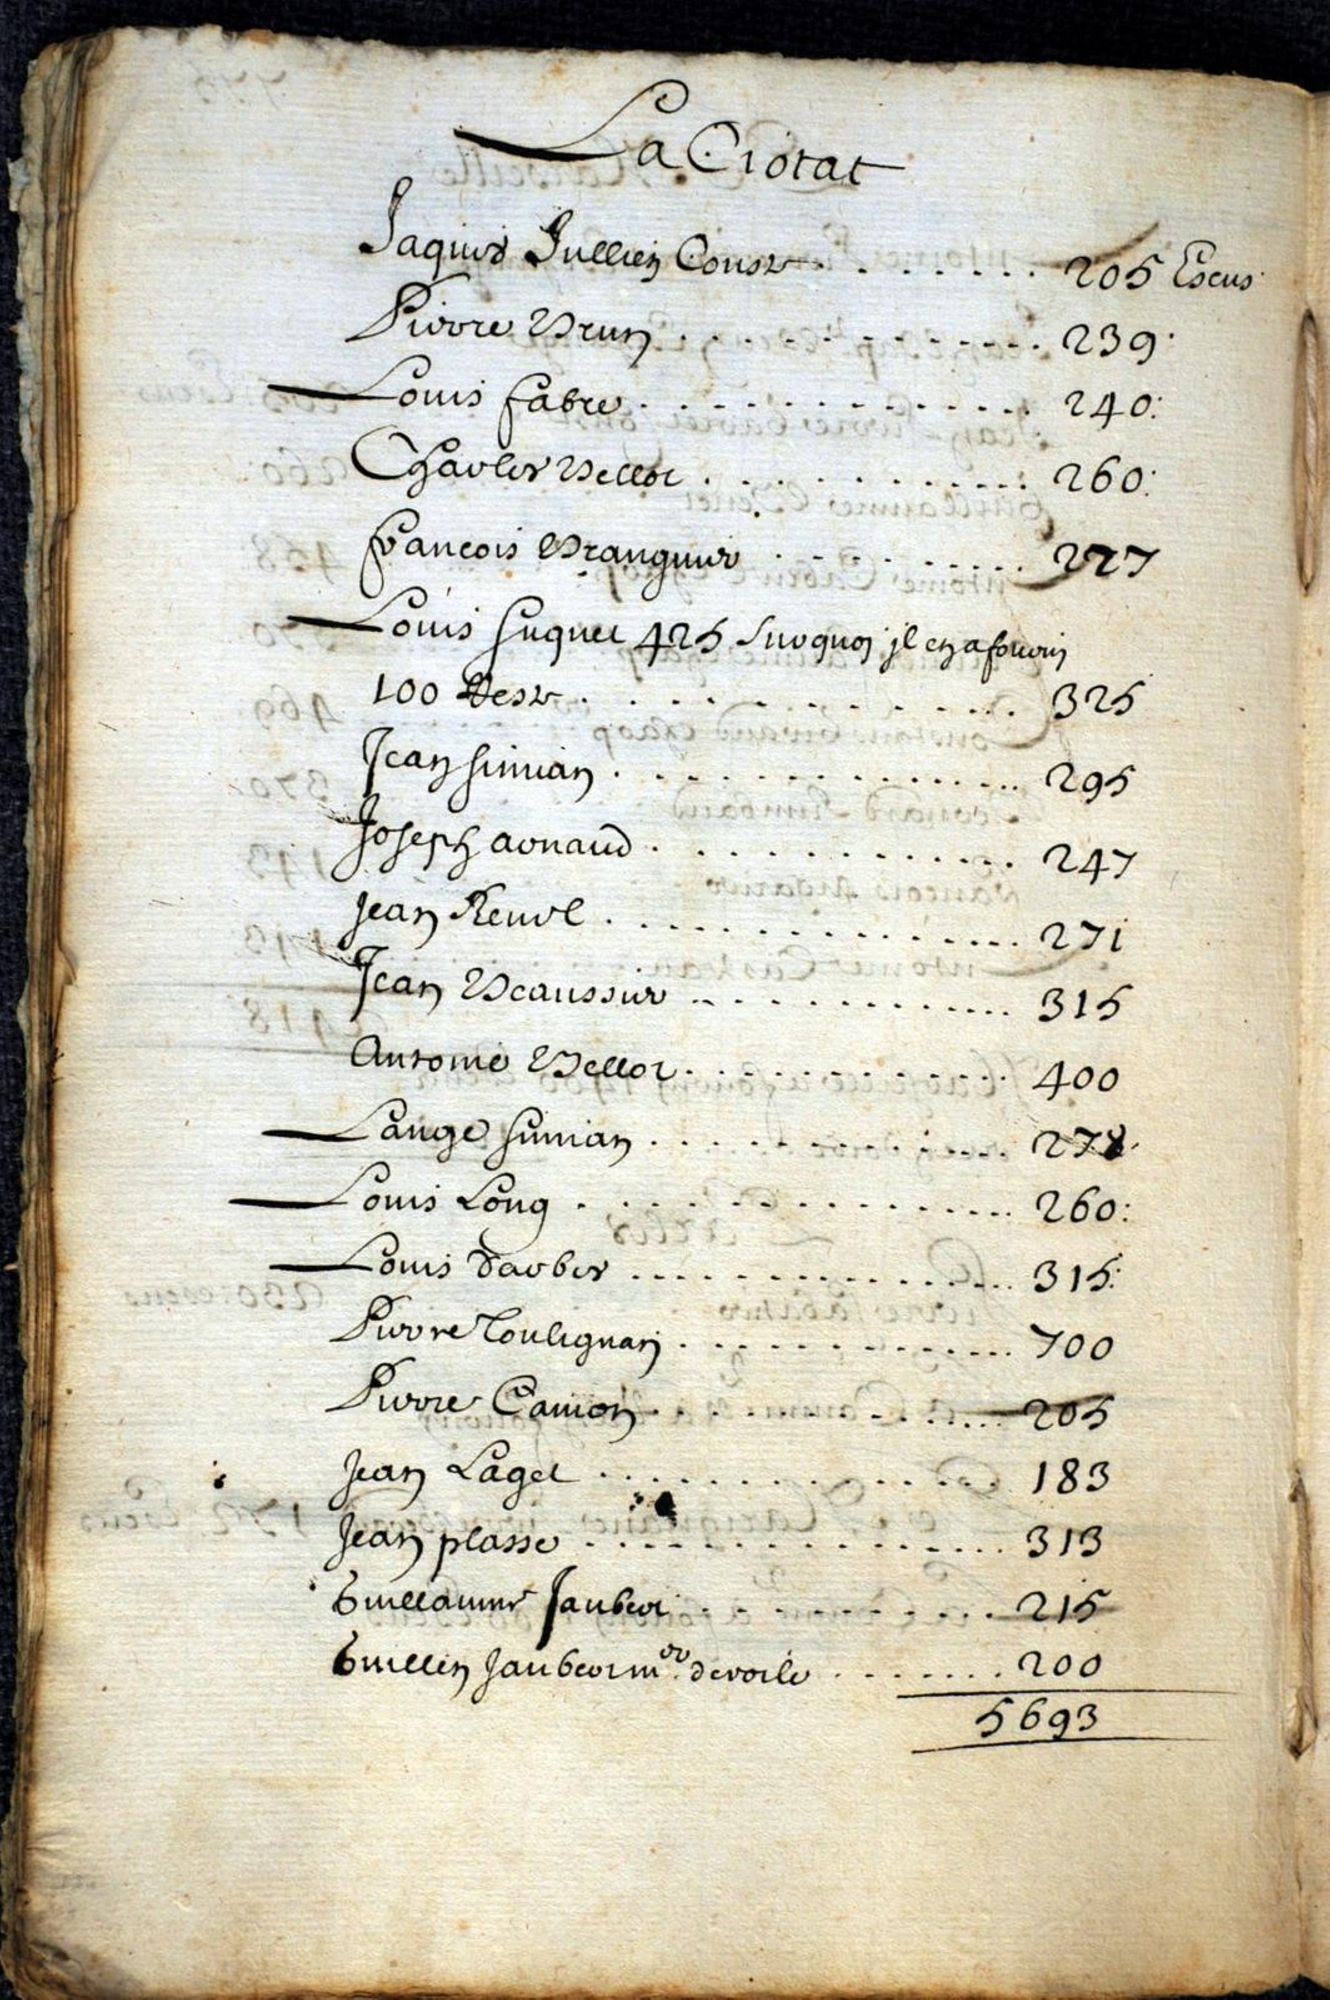 La Ciotat
Jaques Jullien Conse . . . . . . . . 205 Escus
Pierre Brun . . . . . . . . . . . . . 239
Louis fabre . . . . . . . . . . . . . 240
Charles Bellot . . . . . . . . . . . . 260
francois Branguier . . . . . . . . . . 227
Louis huguet 425 surquoy jl en a fourny
100 Reste . . . . . . . . . . . . . 325
Jean simian . . . . . . . . . . . . . 295
Joseph arnaud . . . . . . . . . . . . 247
Jean . . . . . . . . . . . . . . 271
Jean Beaussier . . . . . . . . . . . . 315
Antoine Bellot . . . . . . . . . . . . 400
Lange simian . . . . . . . . . . . . . 278
Louis Long . . . . . . . . . . . . . . 260
Louis Daubes . . . . . . . . . . . . . 315
Pierre Toulignan . . . . . . . . . . . 700
Pierre Camoin . . . . . . . . . . . . 205
Jean Laget . . . . . . . . . . . . . . 183
Jean plasse . . . . . . . . . . . . . 313
Guillaume Jaubert . . . . . . . . . . 215
Guillen Jaubert mre de voile . . . . . . . 200
5693